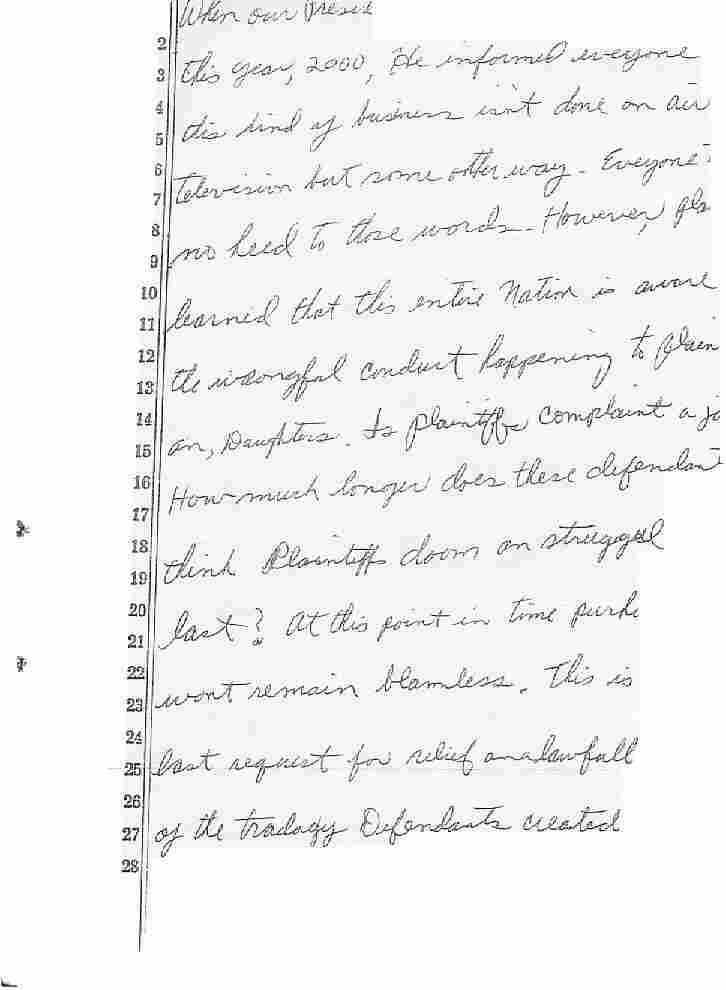 When our Presid
2
this year, 2000, He informed everyone
3
4
this kind of business isn't done on air
5
6
television but some other way - Everyone
7
8
no heed to those words - However,
9
10
learned that this entire Nation is aware
11
12
the wrongful conduct happening to plain
13
14
an, Daughters. Is plaintiffs complaint a jo
15
16
How much longer does these defendant
17
18
think Plaintiffs doom an struggel
19
20
last? At this point in time
21
22
wont remain blamless. This is
23
24
last request for relief an a lawfull
25
26
of the tradagy Defendants created
27
28